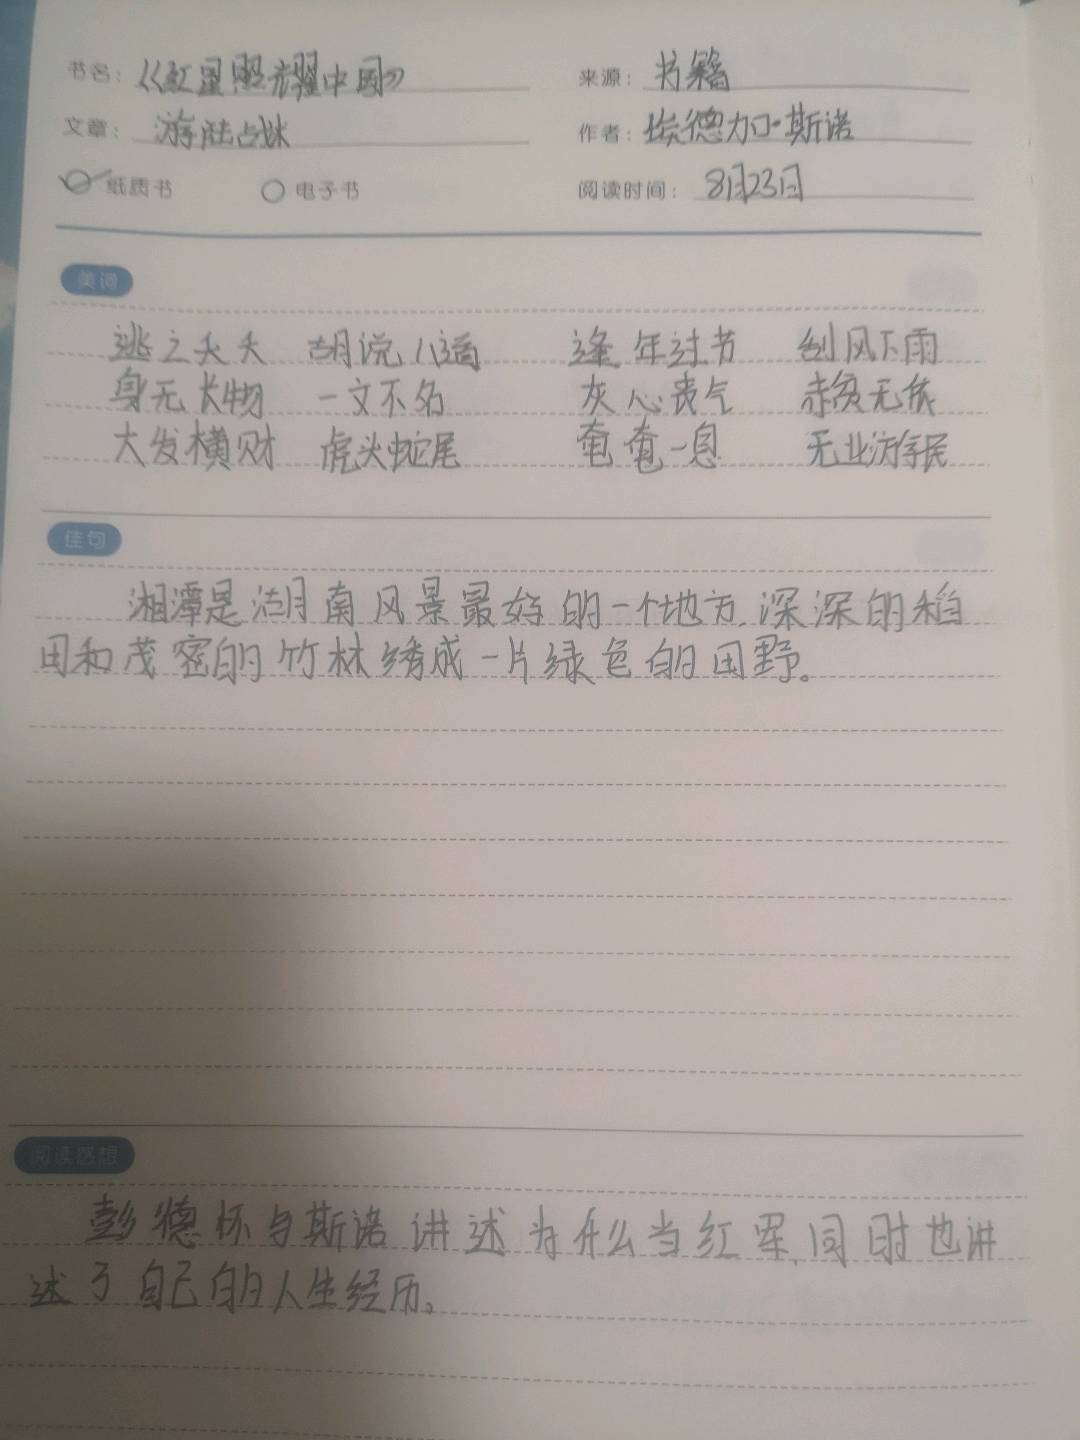 书名：《红星照耀中国》 来源：书籍
文章：游陆占林 作者：埃德加·斯诺
纸质书 电子书 阅读时间：8月23日
美词
逃之夭夭 胡说八道 逢年过节 刮风下雨
身无长物 一文不名 灰心丧气 赤贫无依
大发横财 虎头蛇尾 奄奄一息 无业游民
佳句
湘潭是湖南风景最好的一个地方,深深的稻
田和茂密的竹林绣成一片绿色的田野。
阅读感想
彭德怀与斯诺讲述为什么当红军,同时也讲
述了自己的人生经历。